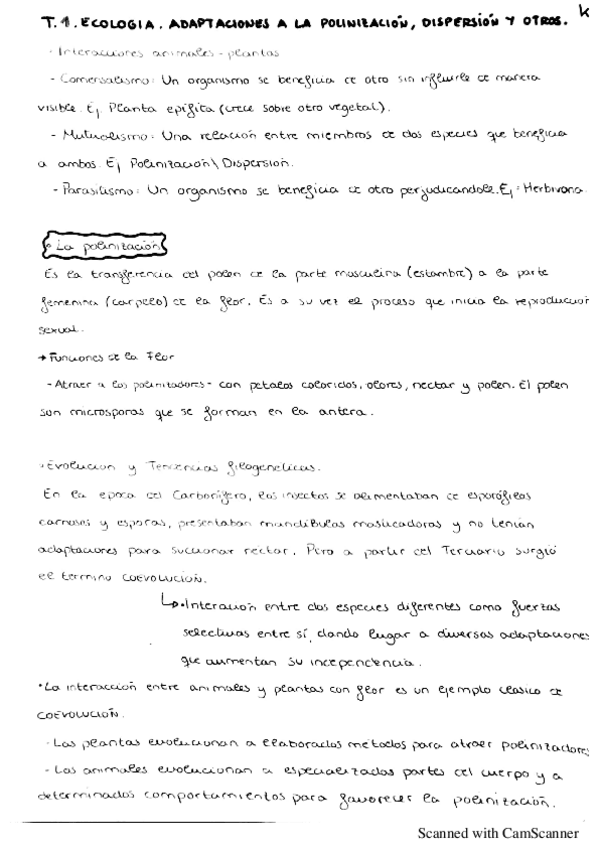 T.1. ECOLOGIA. ADAPTACIONES A LA POLINIZACIÓN, DISPERSIÓN Y OTROS.
- Interacciones animales - plantas
- Comensalismo: Un organismo se beneficia de otro sin influirle de manera
visible. Ej Planta epífita (crece sobre otro vegetal).
- Mutualismo: Una relación entre miembros de dos especies que beneficia
a ambos. Ej Polinización\ Dispersión.
- Parasitismo: Un organismo se beneficia de otro perjudicandole. Ej: Herbivoría.
• La polinización
Es la transferencia del polen de la parte masculina (estambre) a la parte
femenina (carpelo) de la flor. Es a su vez el proceso que inicia la reproducción
sexual.
→ Funciones de la Flor
- Atraer a los polinizadores - con petalos coloridos, olores, nectar y polen. El polen
son microsporas que se forman en la antera.
• Evolucion y Tendencias filogeneticas.
En la epoca del Carbonífero, los insectos se alimentaban de esporófilos
carnosos y esporas, presentaban mandíbulas masticadoras y no tenían
adaptaciones para succionar nectar. Pero a partir del Terciario surgió
el termino COEVOLUCIÓN.
↳ • Interacción entre dos especies diferentes como fuerzas
selectivas entre sí, dando lugar a diversas adaptaciones
que aumentan su independencia.
• La interacción entre animales y plantas con flor es un ejemplo clasico de
COEVOLUCIÓN.
- Las plantas evolucionan a elaborados métodos para atraer polinizadores
- Los animales evolucionan a especializadas partes del cuerpo y a
determinados comportamientos para favorecer la polinización.
Scanned with CamScanner